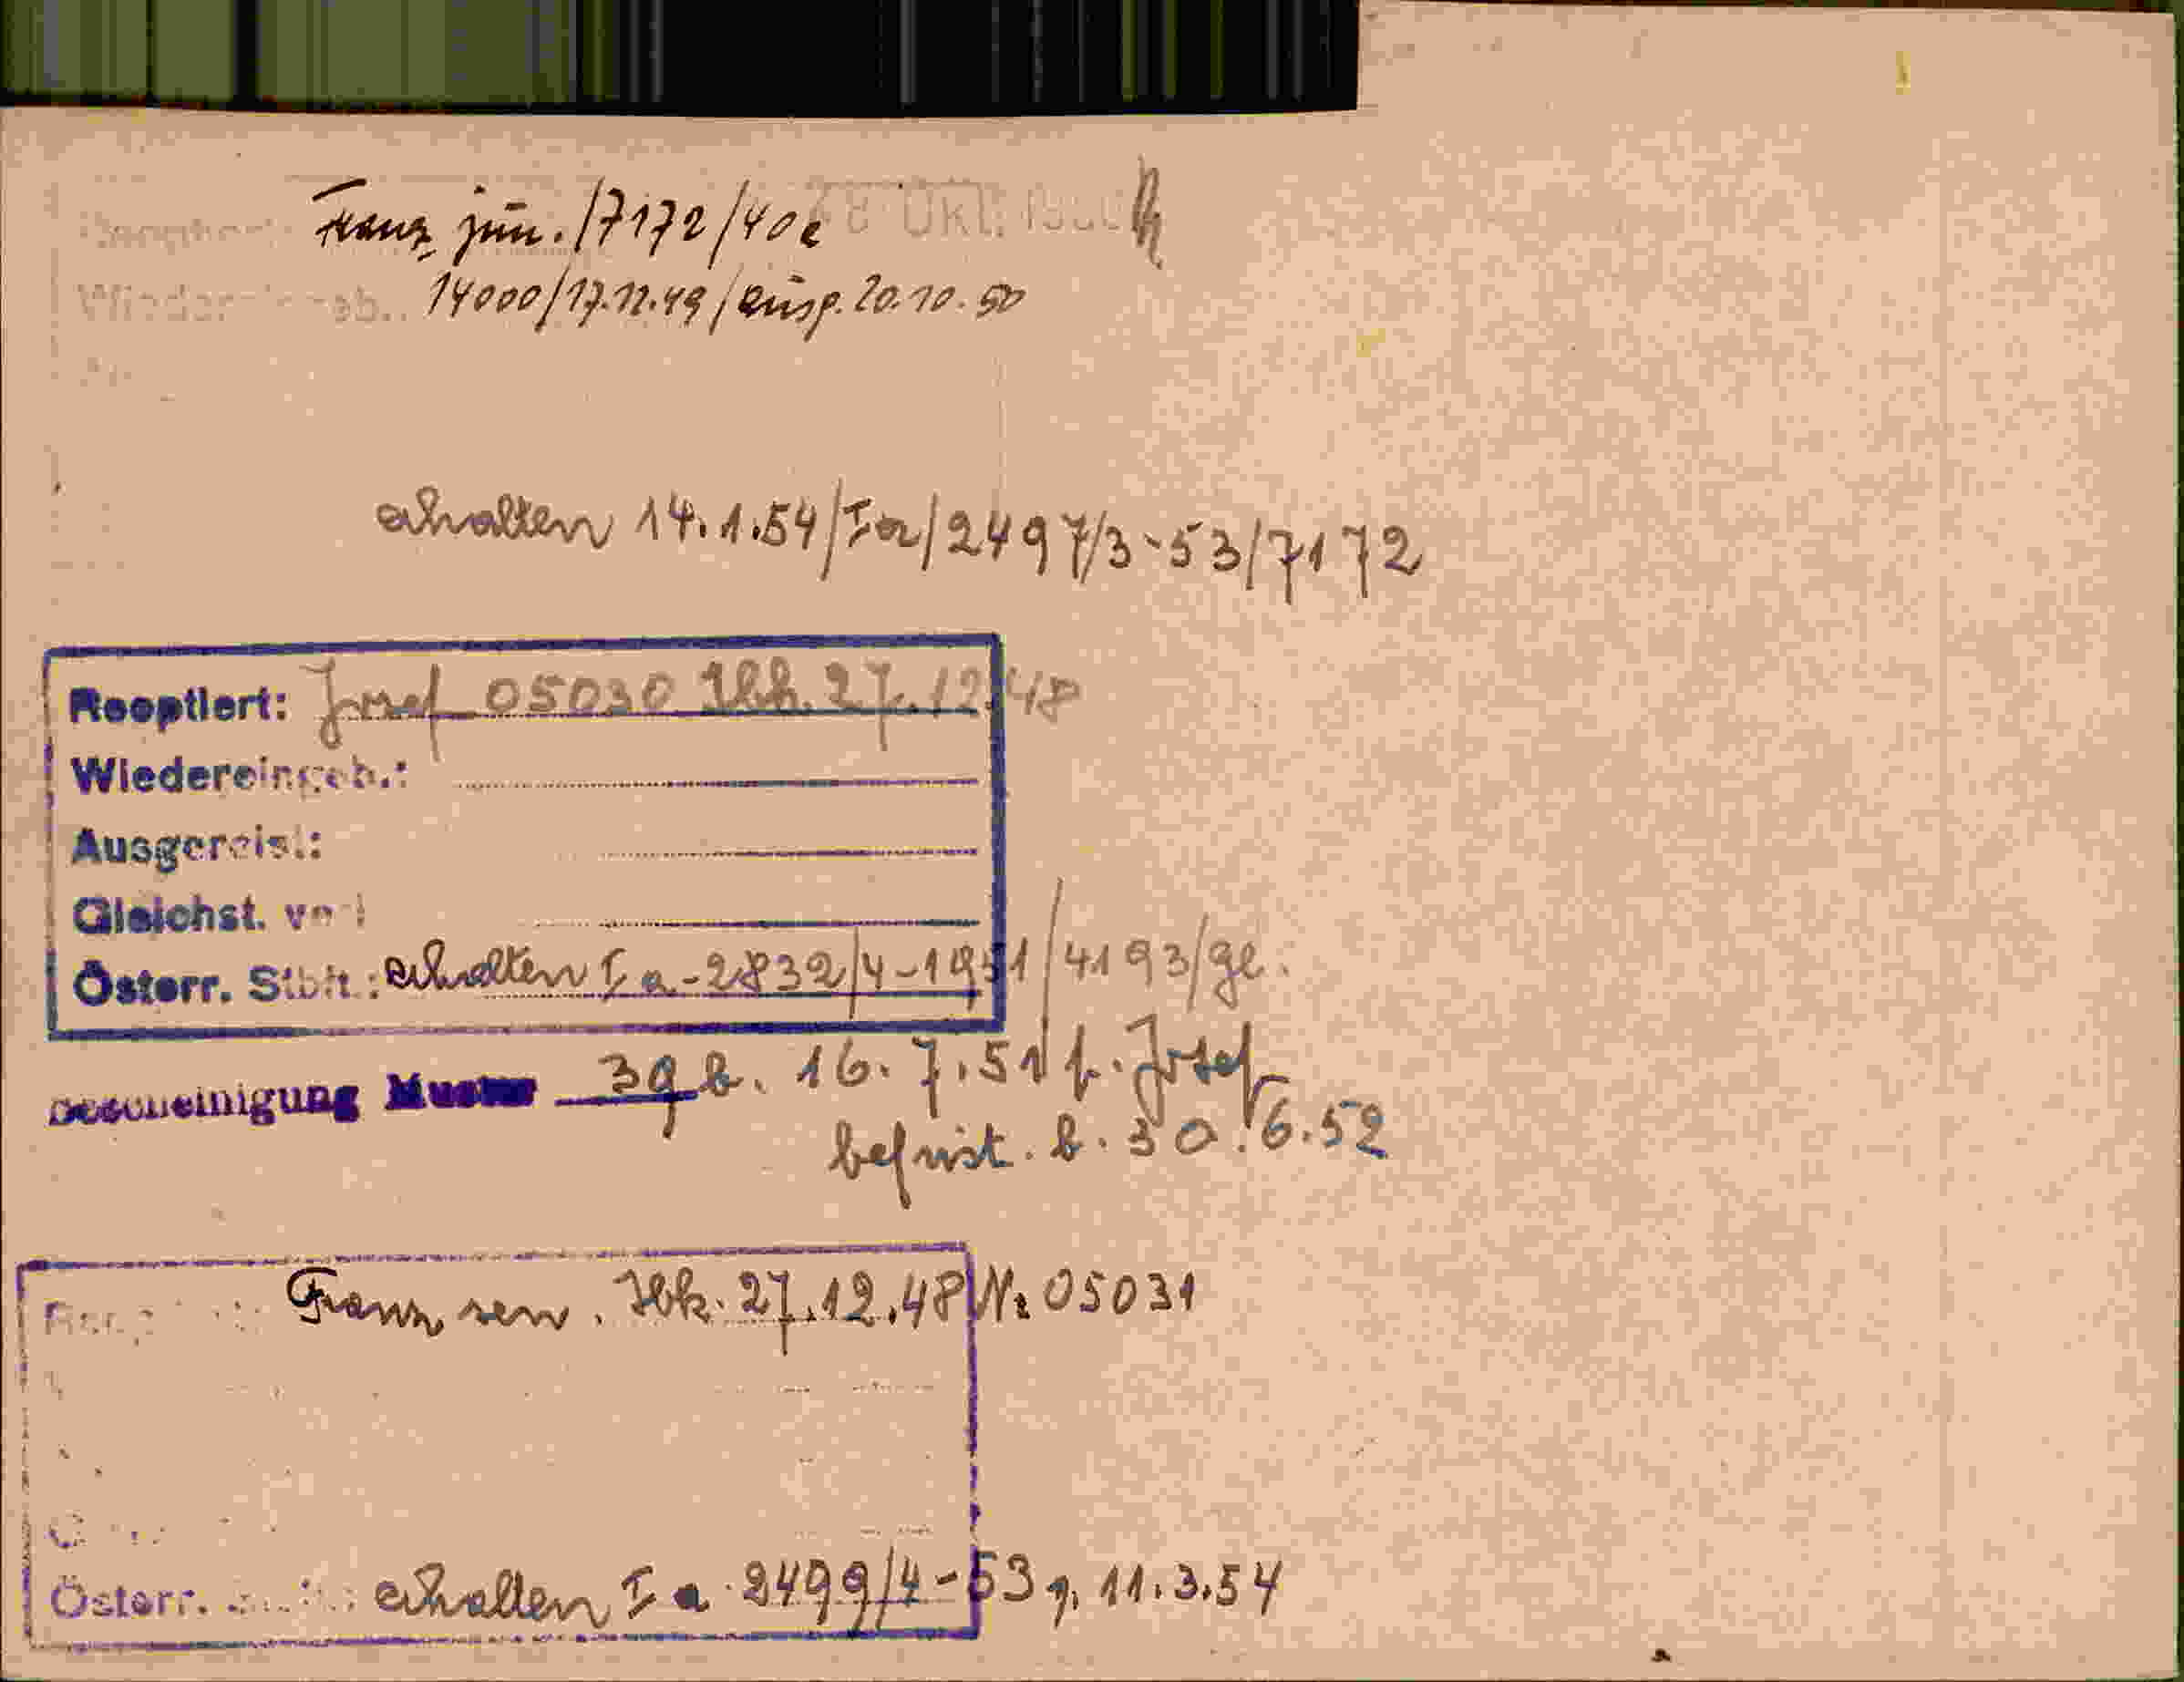 Franz jun. /7172/40e 8 OKT. 195
Wieder eb.. 14000/17.11.49/Einspr. 20.10.50
erhalten 14.1.54/Ia/2497/3-53/7172
Reoptiert: Josef 05030 Ibk. 27.12.48
Wiedereingeb.:
Ausgereist.:
Gleichst. v
Österr. Stbft.: erhalten I a-2832/4-1951/4193/ge.
Bescheinigung Muster 39 b. 16.7.51 f. Josef
befrist. b. 30.6.52
Franz sen. Ibk. 27.12.48 Nr 05031
Österr. erhalten I a 2499/4-53 v. 11.3.54